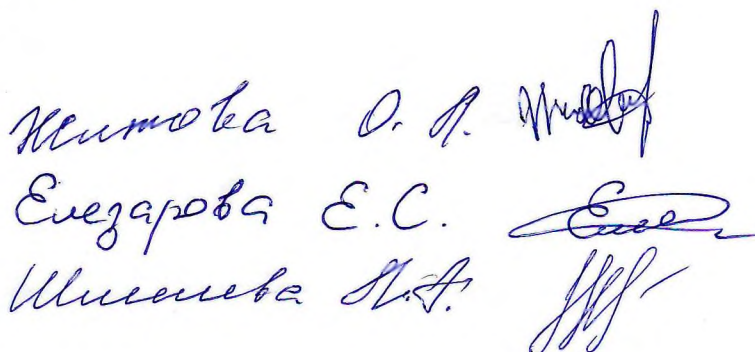 Житова О. А.
Елезарова Е.С.
Шишова Н.А.